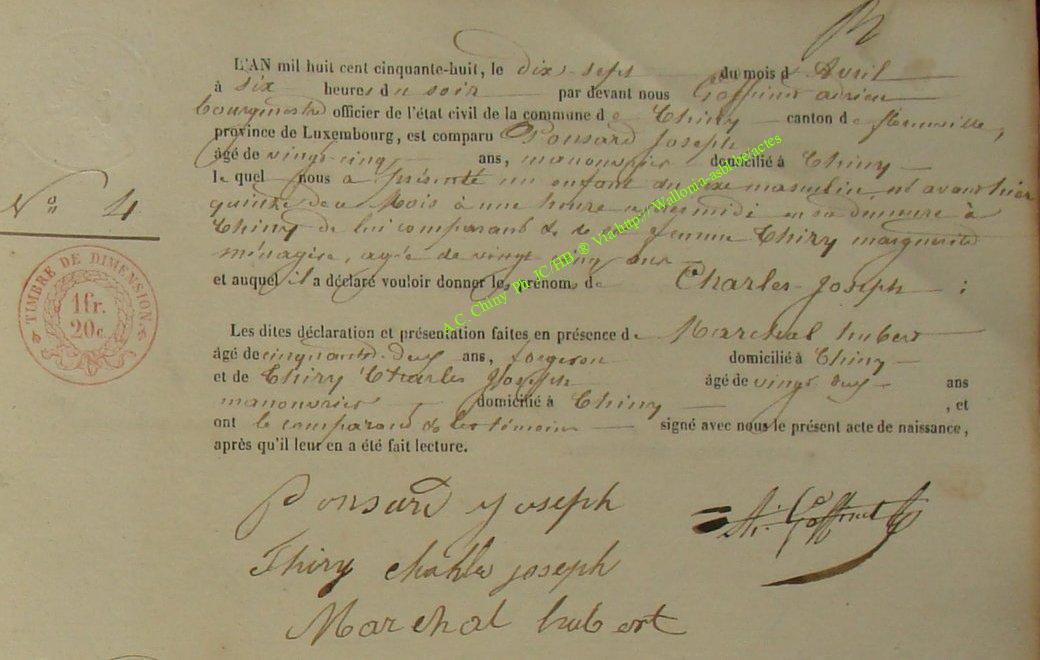 L'AN mil huit cent cinquante-huit, le dix-sept du mois d'Avril
à six heures du soir par devant nous Goffinet adrien
bourgmestre officier de l'état civil de la commune de Chiny canton de florenville,
province de Luxembourg, est comparu Ponsard Joseph
âgé de vingt-cinq ans, manouvrier domicilié à Chiny
le quel nous a présenté un enfant du sexe masculin né avant hier
quinze de ce Mois à une heure après midi en sa demeure à
Chiny de lui comparant & de sa femme Thiry marguerite
N° 4
ménagère, agée de vingt cinq ans
et auquel il a déclaré vouloir donner les prénoms de Charles-Joseph :
TIMBRE DE DIMENSION
1 fr.
20 c.
Les dites déclaration et présentation faites en présence de Marchal hubert
âgé de cinquante-deux ans, forgeron domicilié à Chiny
et de Thiry Charles Joseph âgé de vingt deux ans
manouvrier domicilié à Chiny, et
ont le comparant & les témoins signé avec nous le présent acte de naissance,
après qu'il leur en a été fait lecture.
Ponsard Joseph
Ad. Goffinet
Thiry charles joseph
Marchal hubert
A.C. Chiny Ph. JC/HB ® Via http://Wallonia-asbl.be/actes